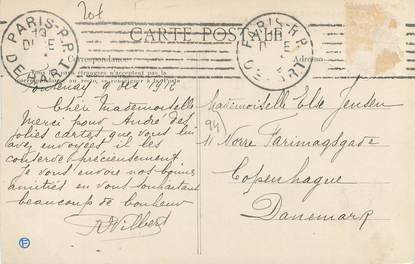 20f
PARIS-R.P.
DEPART
PARIS-R.P.
DEPART
CARTE POSTALE
Correspondance
Adresse
Fontenay 9 Dec 1912
Chère Mademoiselle
Merci pour André des
jolies cartes que vous lui
avez envoyées il les
conserve précieusement
Je vous envoie nos bonnes
amitiés en vous souhaitant
beaucoup de bonheur
Mademoiselle Else Jensen
94
11 Norre Farimagsgade
Copenhague
Danemark